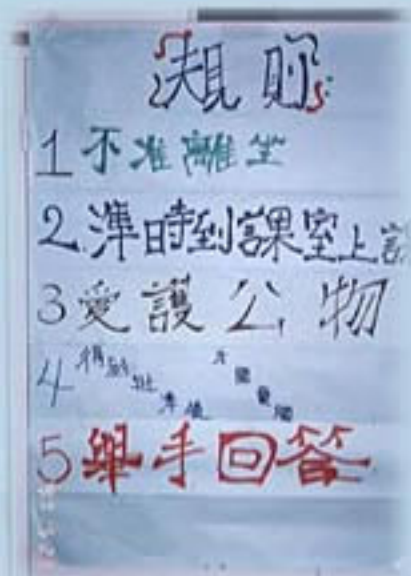 規則:
1 不准離坐
2.準時到課室上課
3 愛護公物
4
5 舉手回答